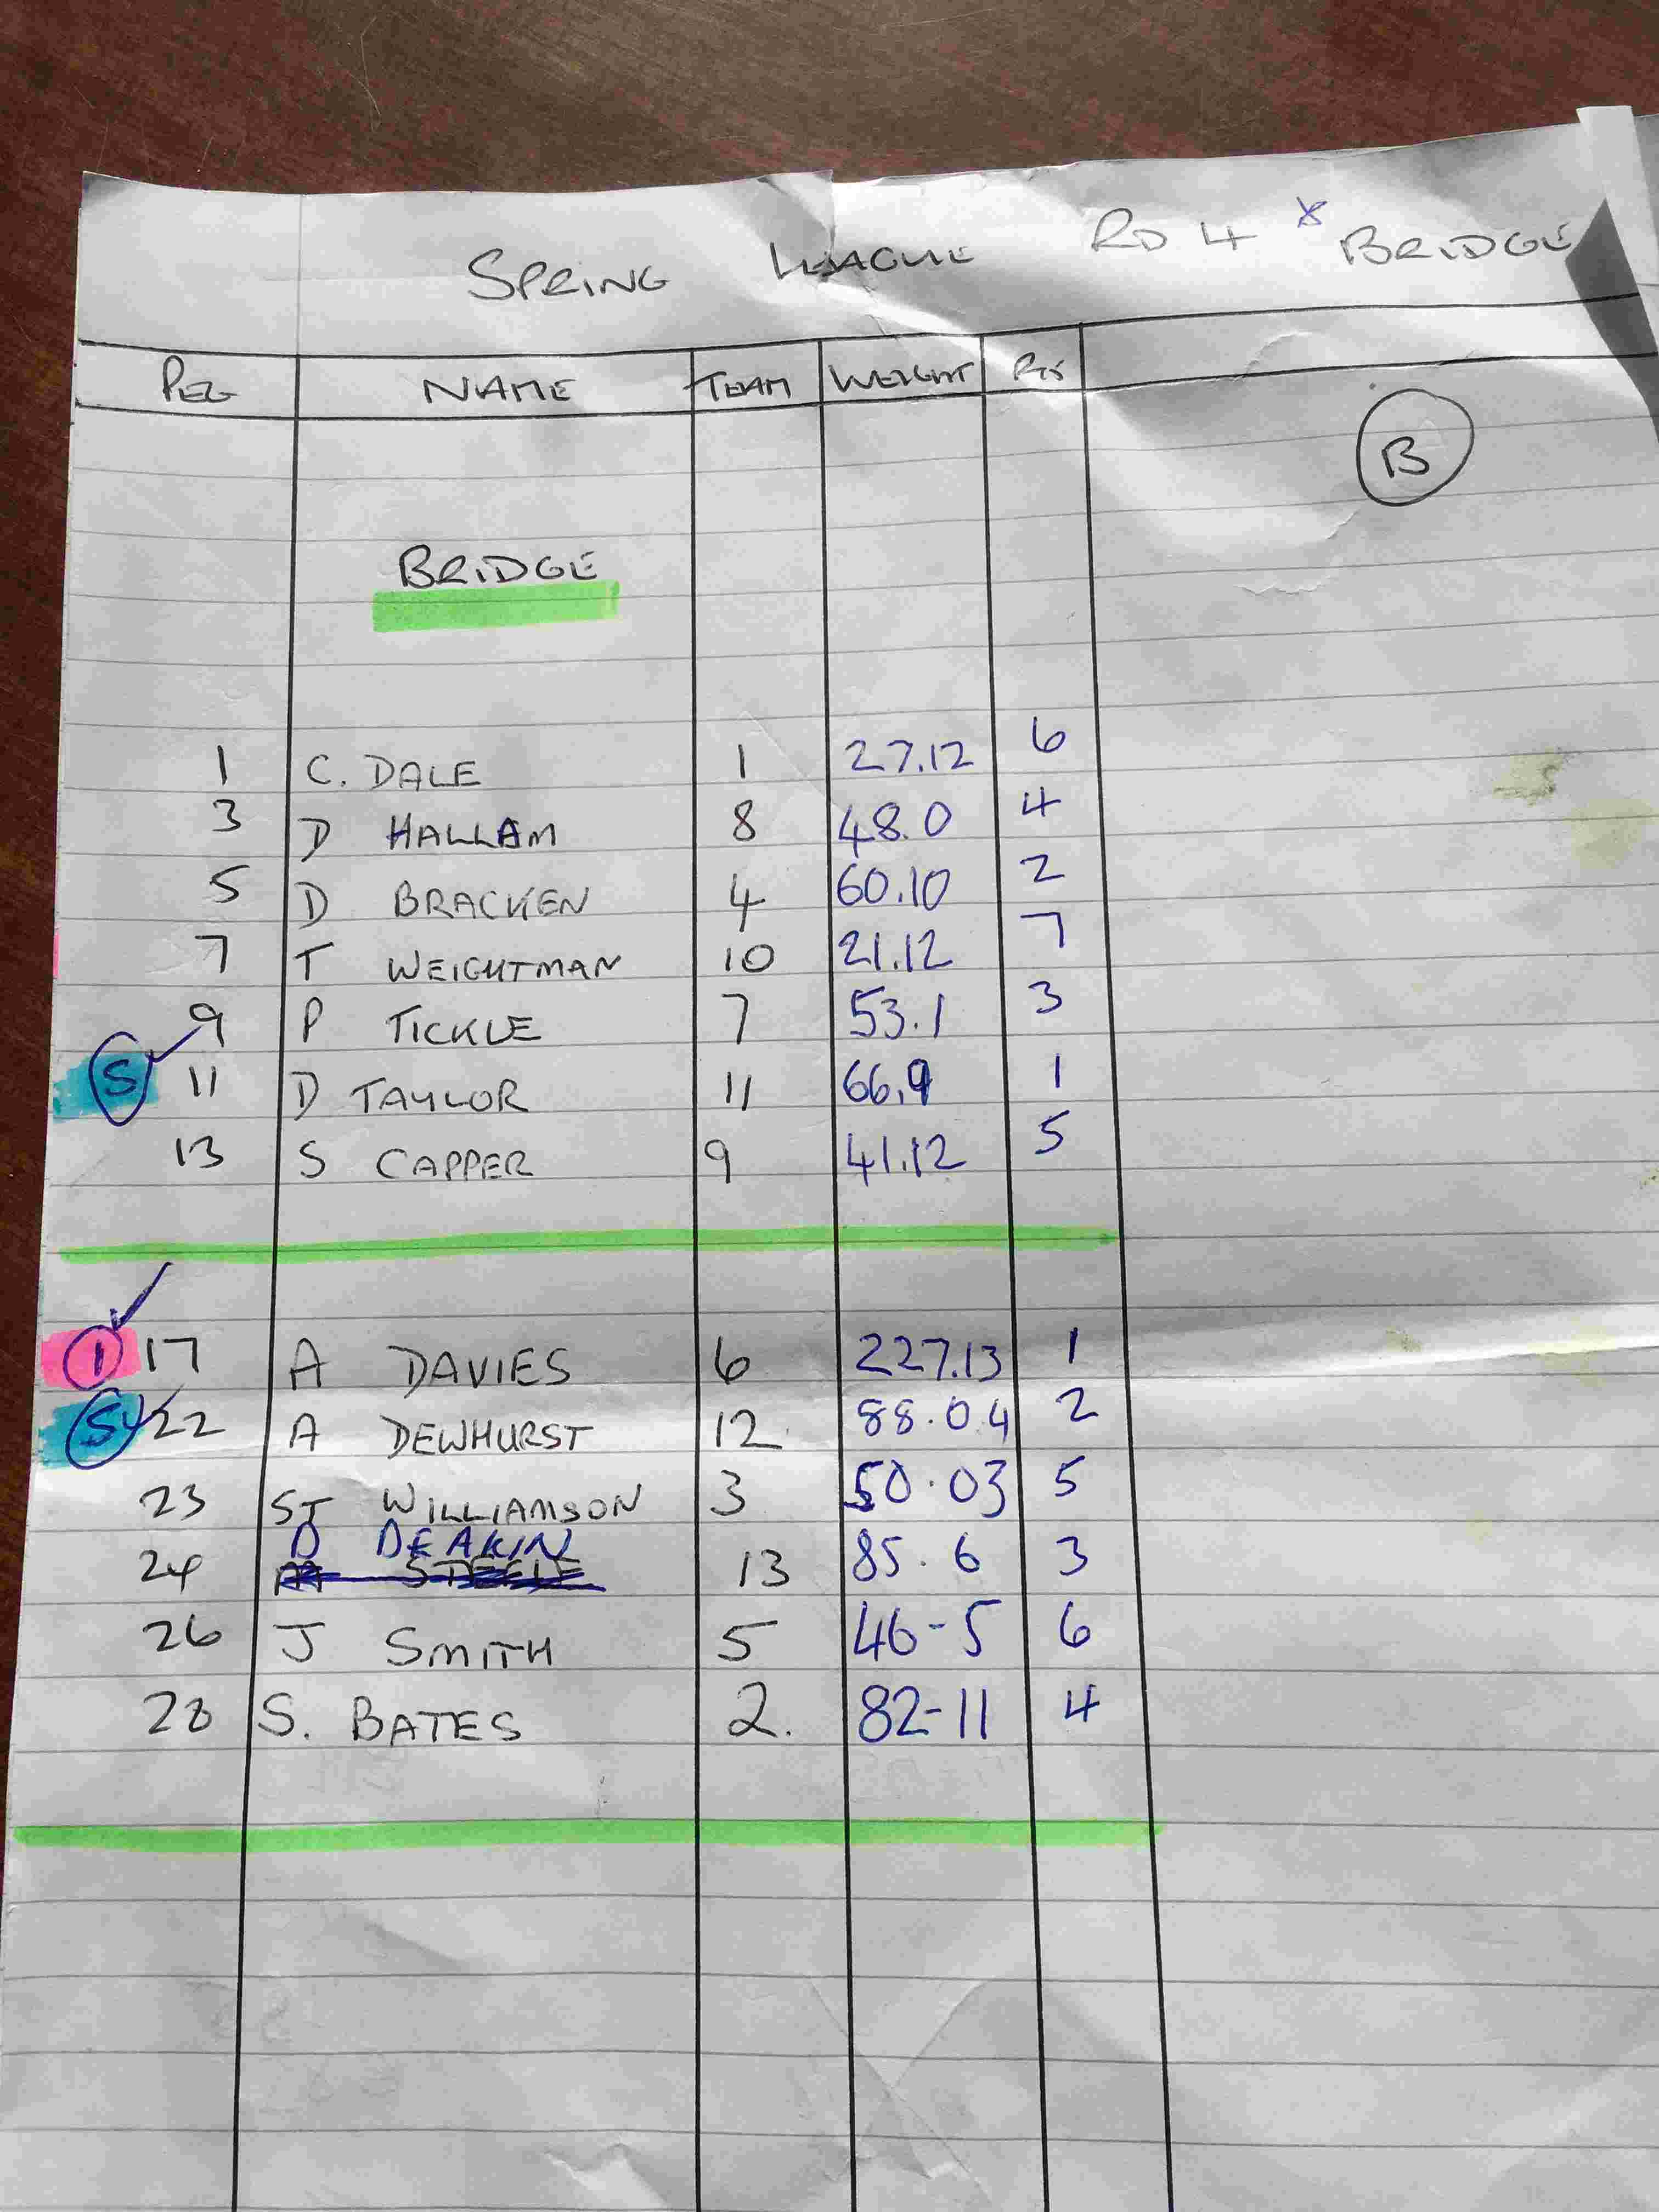 SPRING LEAGUE RD 4 * BRIDGE
PEG NAME TEAM WEIGHT PTS
B
BRIDGE
1 C. DALE 1 27.12 6
3 D HALLAM 8 48.0 4
5 D BRACKEN 4 60.10 2
7 T WEIGHTMAN 10 21.12 7
9 P TICKLE 7 53.1 3
S 11 D TAYLOR 11 66.9 1
13 S CAPPER 9 41.12 5
1 17 A DAVIES 6 227.13 1
S 22 A DEWHURST 12 88.04 2
23 ST WILLIAMSON 3 50.03 5
D DEAKIN
24 STEELE 13 85.6 3
26 J SMITH 5 46-5 6
28 S. BATES 2. 82-11 4